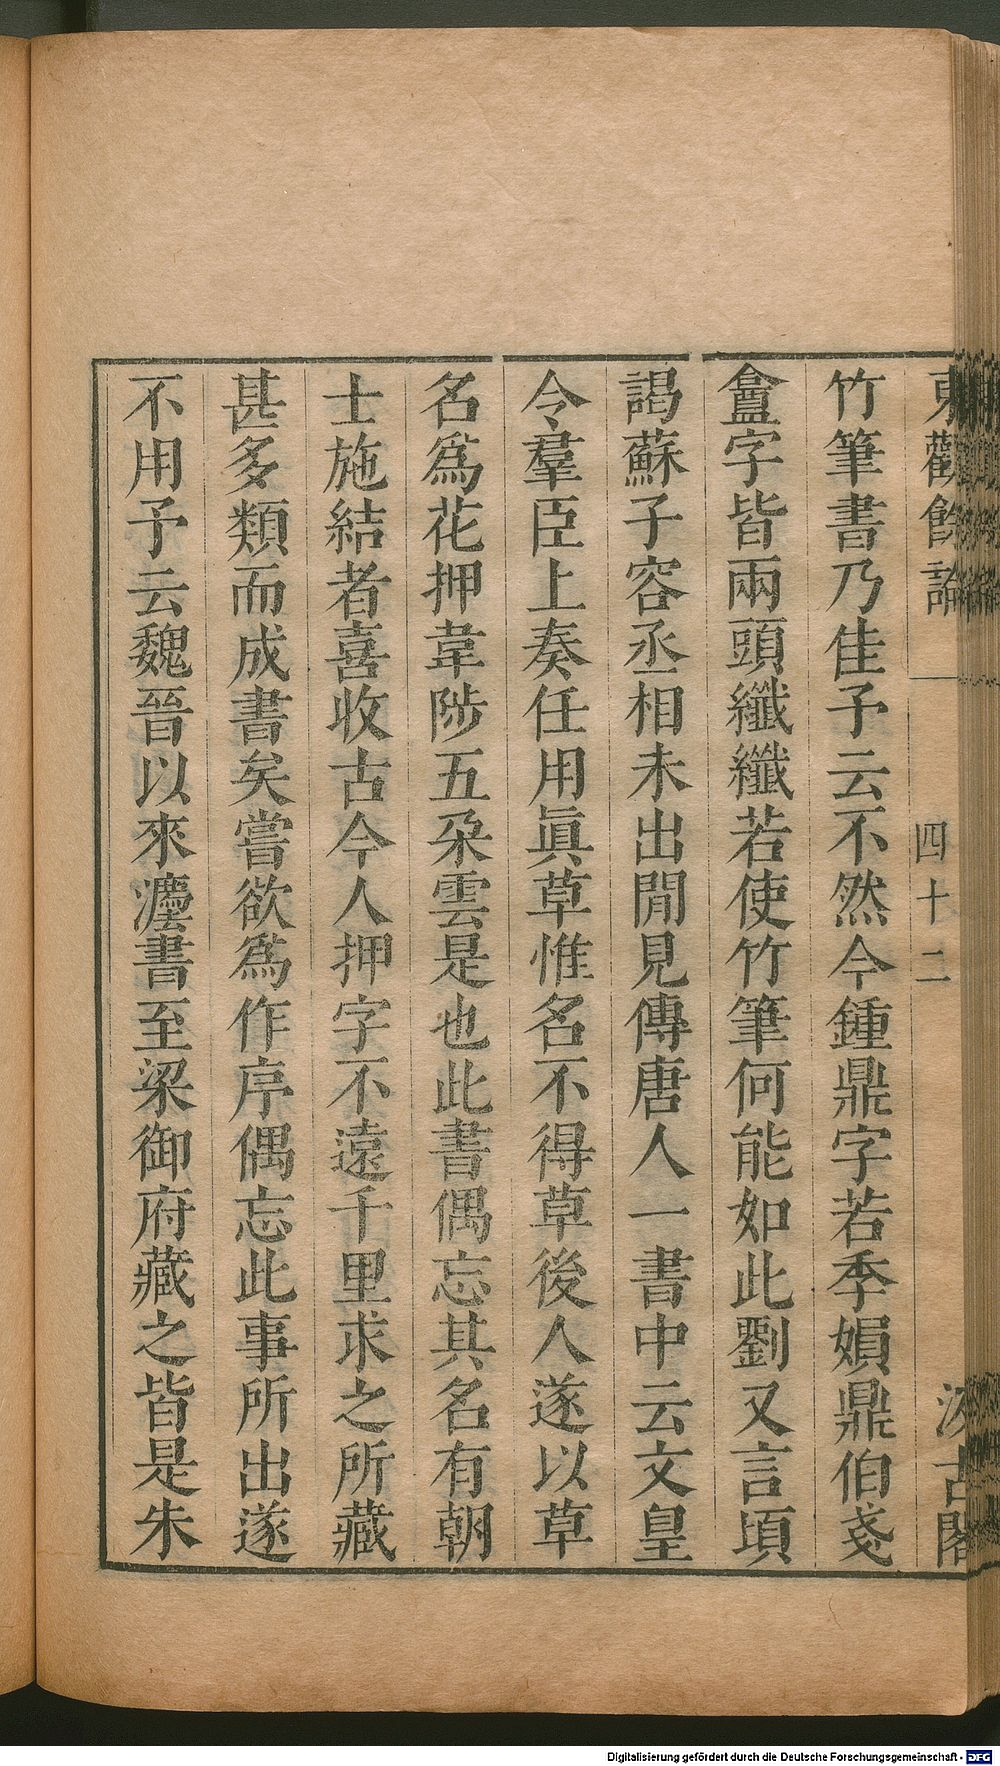 東觀餘論
四十二
汲古閣
竹筆書乃佳予云不然今鍾鼎字若季娟鼎伯戔
盦字皆兩頭纖纖若使竹筆何能如此劉又言頃
謁蘇子容丞相未出閒見傳唐人一書中云文皇
令羣臣上奏任用眞草惟名不得草後人遂以草
名爲花押韋陟五朶雲是也此書偶忘其名有朝
士施結者喜收古今人押字不遠千里求之所藏
甚多類而成書矣嘗欲爲作序偶忘此事所出遂
不用予云魏晉以來灋書至梁御府藏之皆是朱
Digitalisierung gefördert durch die Deutsche Forschungsgemeinschaft - DFG